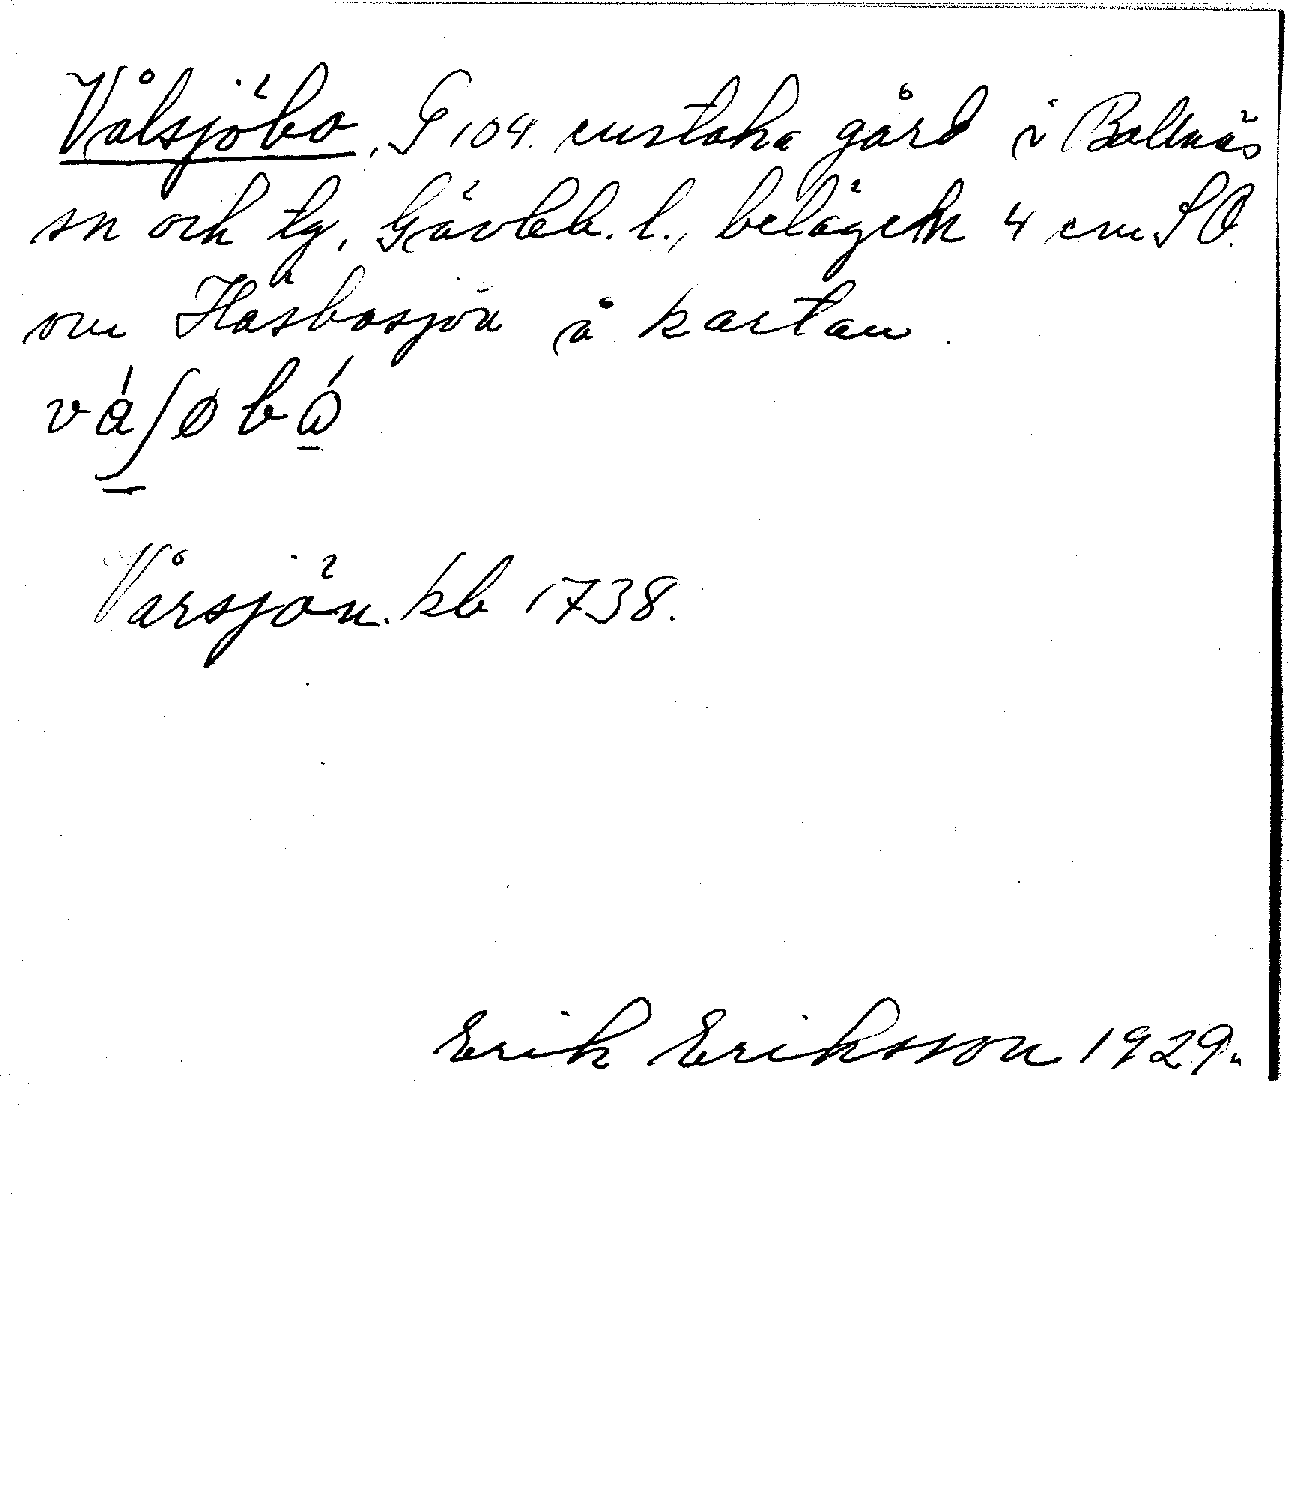 Vålsjöbo, G 104. enstaka gård i Bollnäs
sn och tg, Gävleb. l., belägen 4 cm S O.
om Häsbosjön å kartan.
vå̀ʃøbὼ
Vårsjön. kb 1738.
Erik Eriksson 1929.